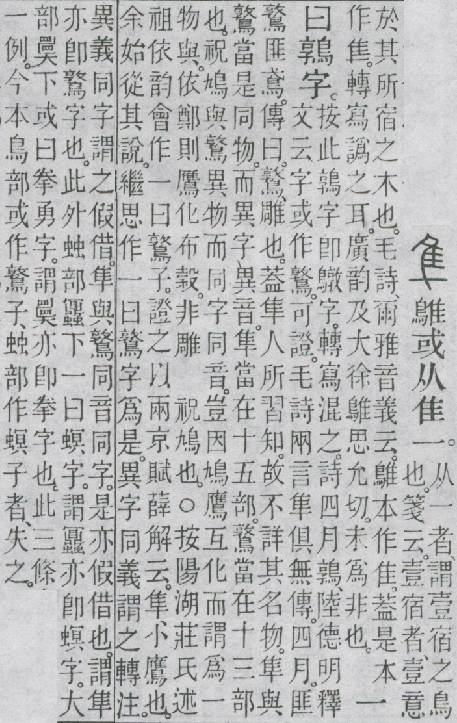 鵻或从隹一。从一者、謂壹宿之鳥
也。箋云。壹宿者壹意
於其所宿之木也。毛詩、爾雅音義云。鵻本作隹。葢是本
作隹。轉寫譌之耳。廣韵及大徐鵻思允切。未爲非也。一
曰鶉字。按此鶉字卽鷻字。轉寫混之。詩四月鶉、陸德明釋
文云。字或作鷻。可證。毛詩兩言隼。俱無傳。四月匪
鷻匪鳶。傳曰。鷻、雕也。葢隼人所習知。故不詳其名物。隼與
鷻當是同物。而異字異音。隼當在十五部。鷻當在十三部
也。祝鳩與鷻異物而同字同音。豈因鳩鷹互化而謂爲一
物與。依鄭則鷹化布穀。非雕 祝鳩也。○按陽湖莊氏述
祖依韵會作一曰鷻子。證之以兩京賦薛解云。隼、小鷹也。
余始從其說。繼思作一曰鷻字爲是。異字同義謂之轉注。
異義同字謂之假借。隼與鷻同音同字。是亦假借也。謂隼
亦卽鷻字也。此外䖵部下一曰螟字。謂亦卽螟字。大
部下或曰拳勇字。謂亦卽拳字也。此三條
一例。今本鳥部或作鷻子、䖵部作螟子者、失之。